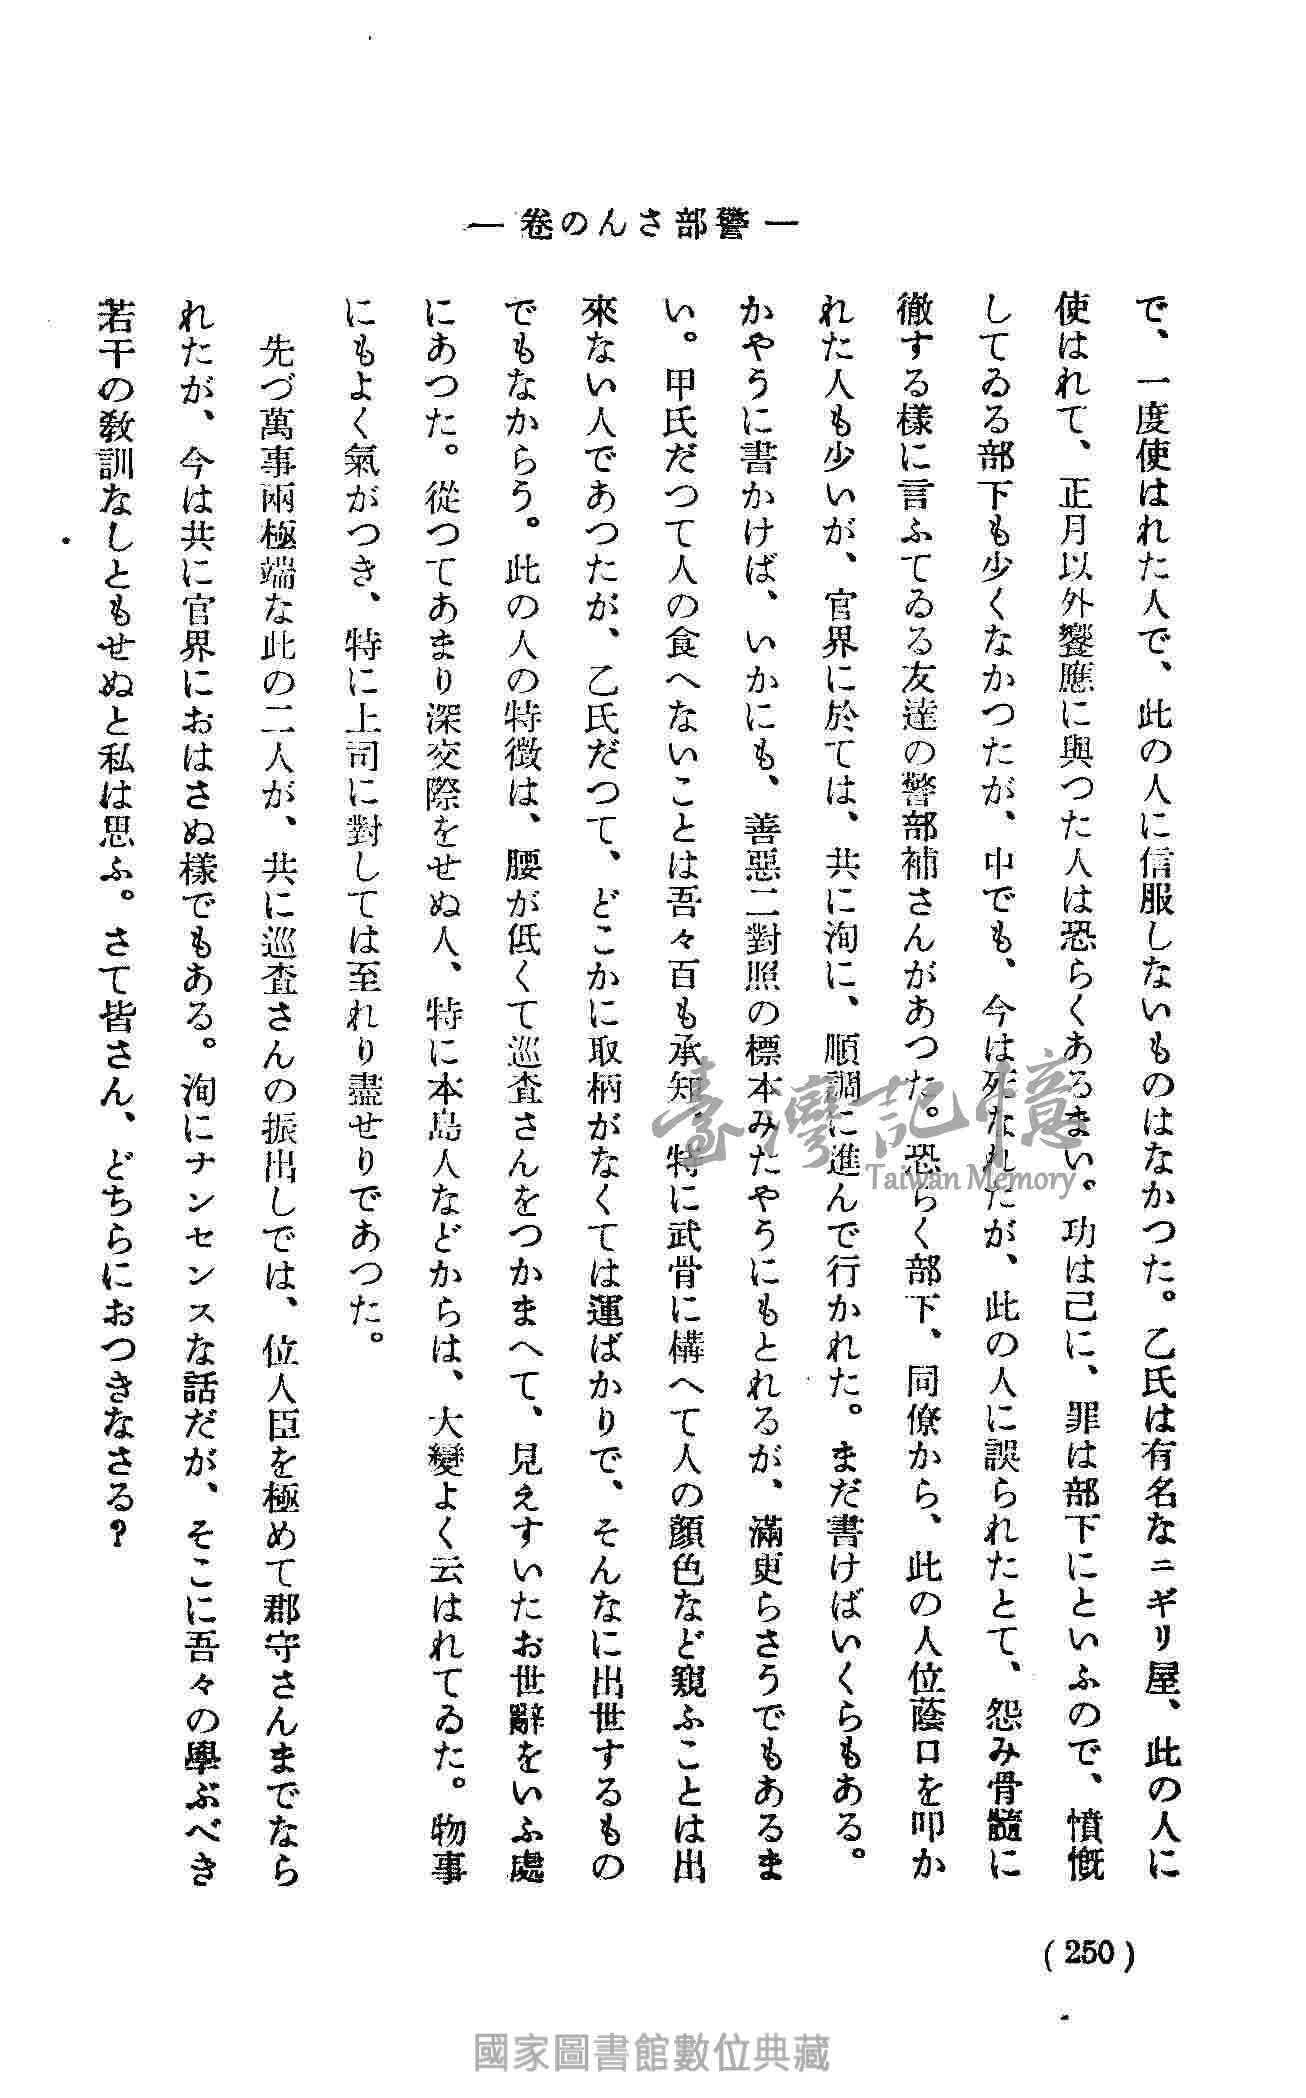 ― 警部さんの卷 ―
で、一度使はれた人で、此の人に信服しないものはなかつた。乙氏は有名なニギリ屋、此の人に
使はれて、正月以外饗應に與つた人は恐らくあるまい。功は己に、罪は部下にといふので、憤慨
してゐる部下も少くなかつたが、中でも、今は死なれたが、此の人に誤られたとて、怨み骨髓に
徹する樣に言ふてゐる友達の警部補さんがあつた。恐らく部下、同僚から、此の人位蔭口を叩か
れた人も少いが、官界に於ては、共に洵に、順調に進んで行かれた。まだ書けばいくらもある。
かやうに書かけば、いかにも、善惡二對照の標本みたやうにもとれるが、滿更らさうでもあるま
い。甲氏だつて人の食へないことは吾々百も承知、特に武骨に構へて人の顏色など窺ふことは出
來ない人であつたが、乙氏だつて、どこかに取柄がなくては運ばかりで、そんなに出世するもの
でもなからう。此の人の特徴は、腰が低くて巡査さんをつかまへて、見えすいたお世辭をいふ處
にあつた。從つてあまり深交際をせぬ人、特に本島人などからは、大變よく云はれてゐた。物事
にもよく氣がつき、特に上司に對しては至れり盡せりであつた。
先づ萬事兩極端な此の二人が、共に巡査さんの振出しでは、位人臣を極めて郡守さんまでなら
れたが、今は共に官界におはさぬ樣でもある。洵にナンセンスな話だが、そこに吾々の學ぶべき
若干の敎訓なしともせぬと私は思ふ。さて皆さん、どちらにおつきなさる？
(250)
臺灣記憶
Taiwan Memory
國家圖書館數位典藏